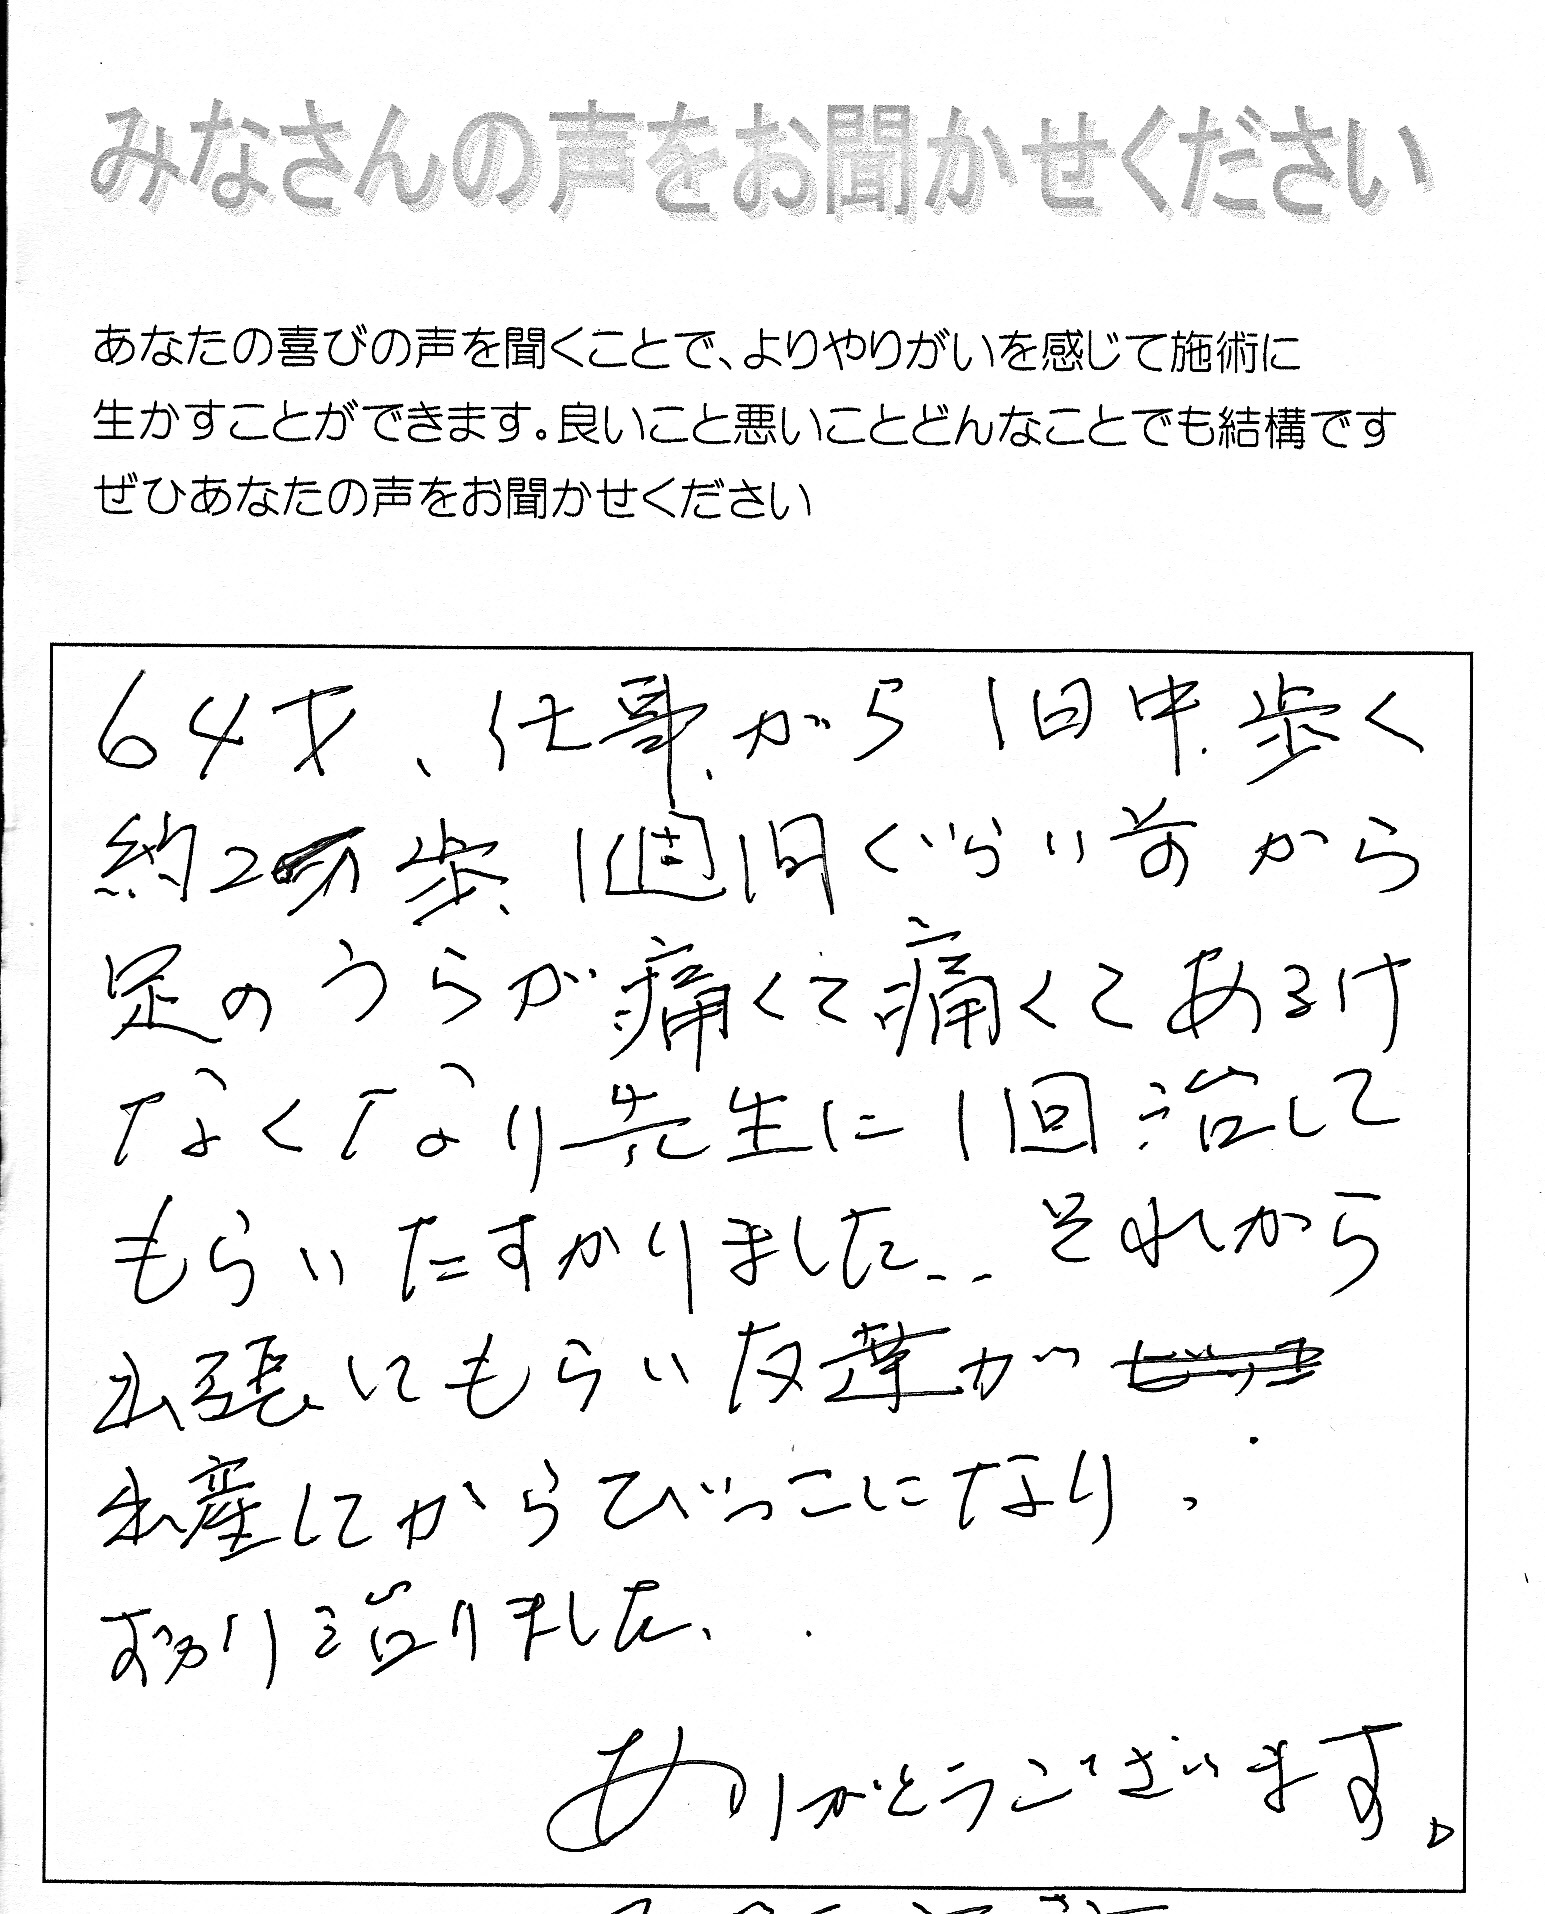 みなさんの声をお聞かせください
あなたの喜びの声を聞くことで、よりやりがいを感じて施術に
生かすことができます。良いこと悪いことどんなことでも結構です
ぜひあなたの声をお聞かせください
64才、仕事がら1日中歩く
約2万歩、1週間ぐらい前から
足のうらが痛くて痛くてあるけ
なくなり先生に1回治して
もらいたすかりました..それから
出張してもらい友達が
出産してからびっこになり、
すっかり治りました、.
ありがとうございます。